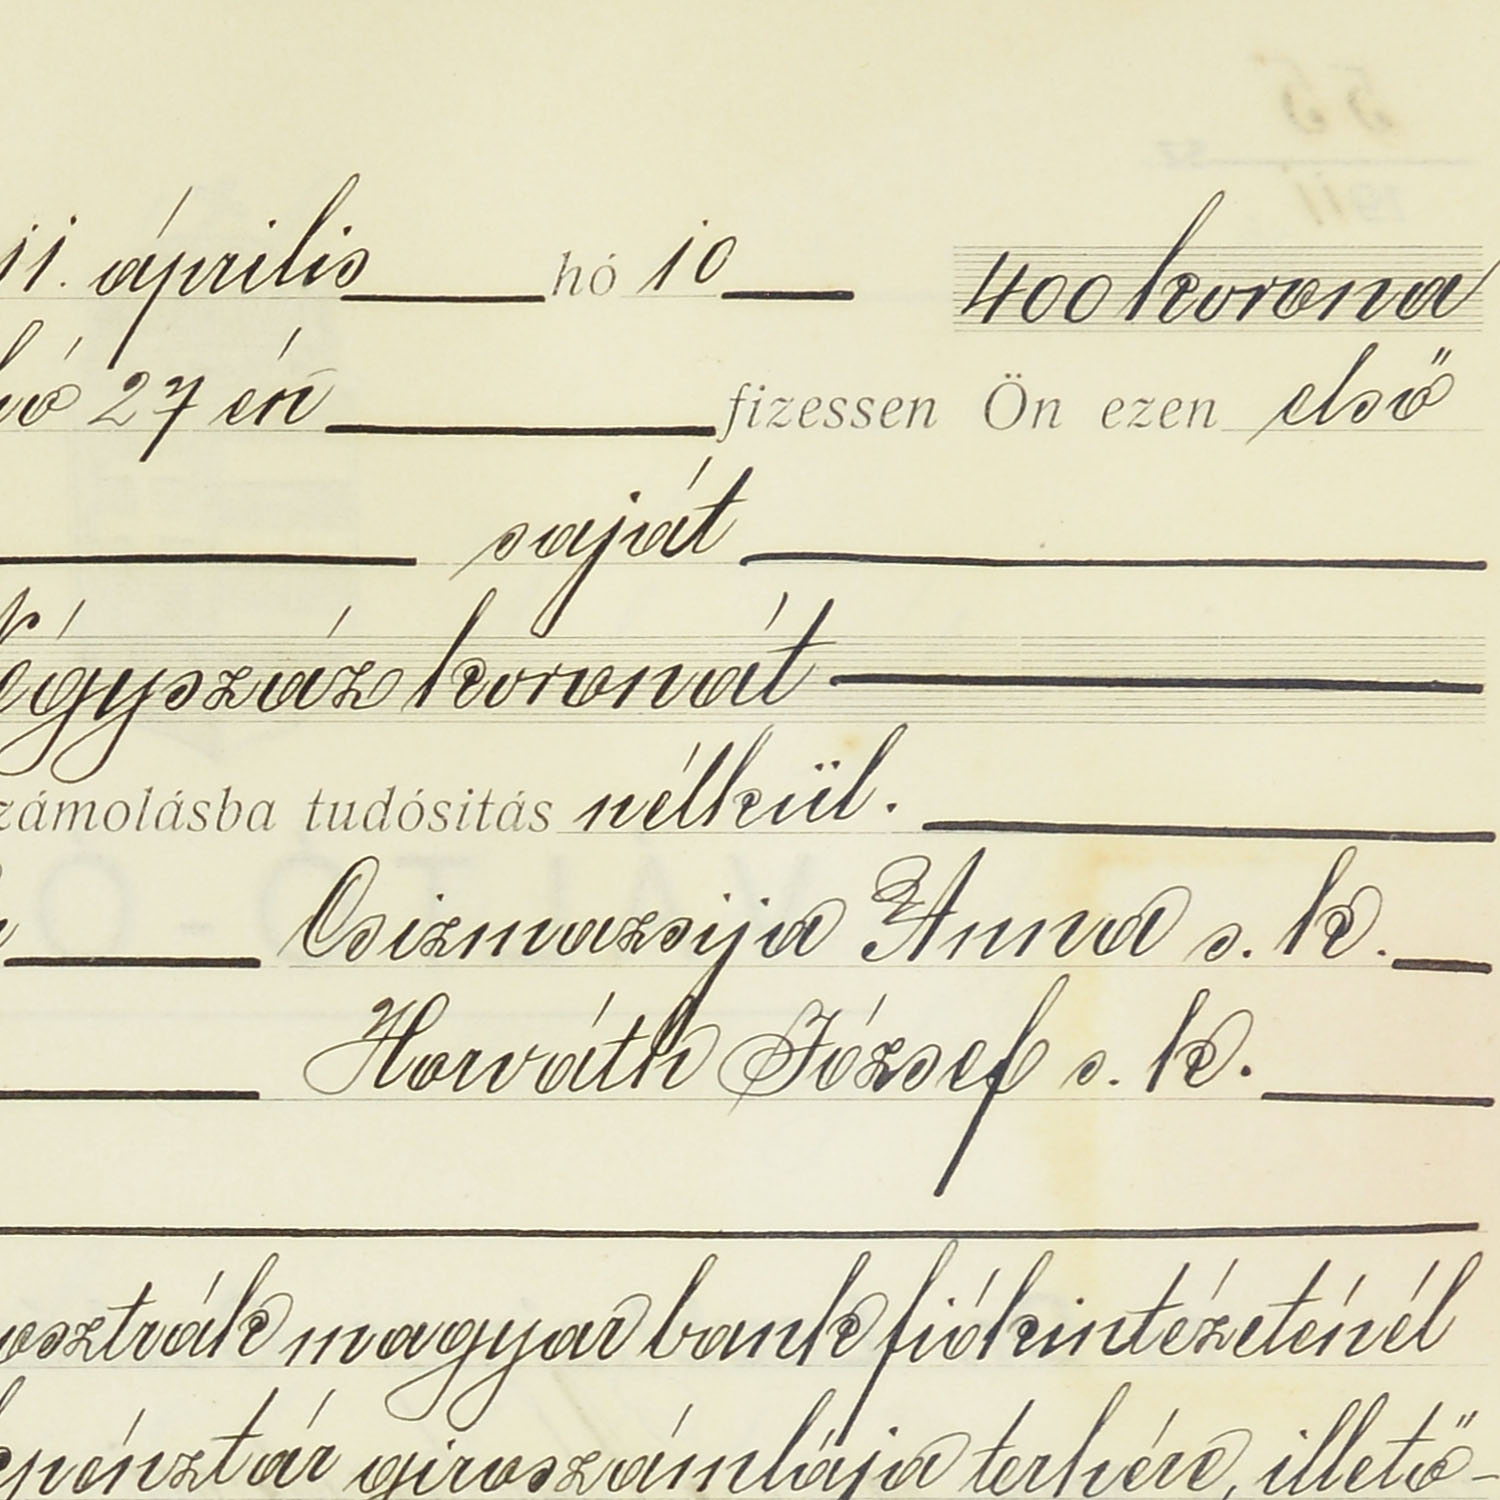 11. április hó 10 400 korona
hó 27 én fizessen Ön ezen első
saját
Négyszáz koronát
számolásba tudósitás nélkül.
Csizmazsija Anna s. k.
Horváth József s. k.
osztrák magyar bank fiókintézeténél
pénztár giroszámlája terhére, illető-